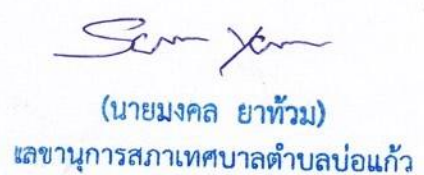 (นายมงคล ยาท้วม)
เลขานุการสภาเทศบาลตำบลบ่อแก้ว